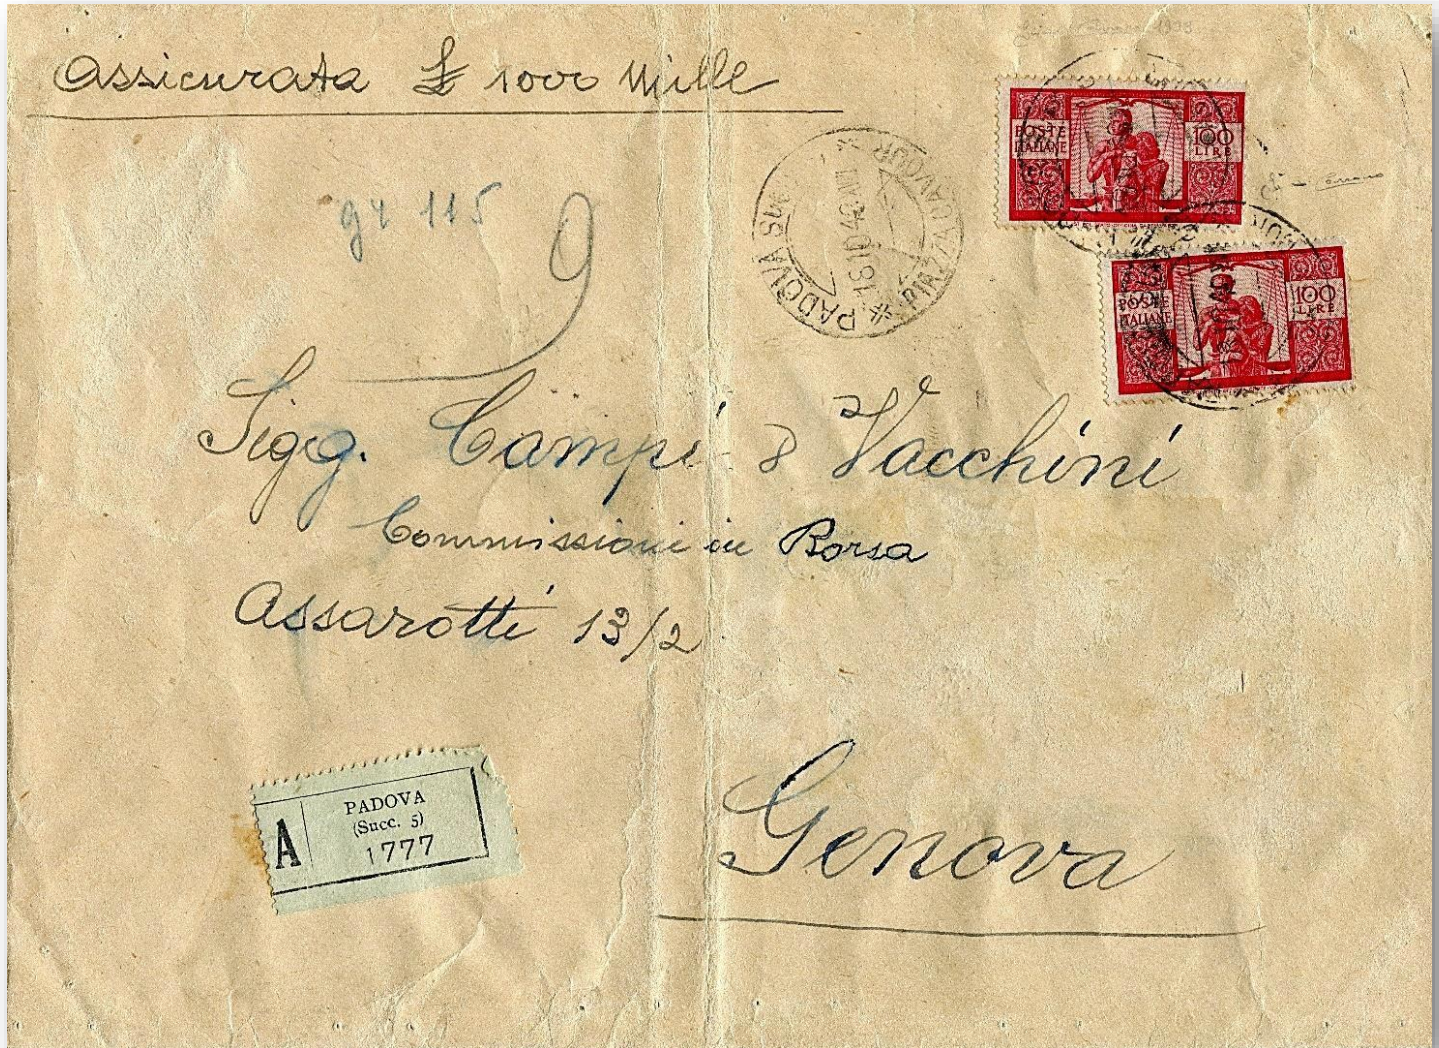 Assicurata £ 1000 Mille
gr 115
9
PADOVA
PIAZZA CAVOUR
POSTE ITALIANE
100 LIRE
POSTE ITALIANE
100 LIRE
Sigg. Campi & Vacchini
Commissioni in Borsa
Assarotti 13/2
A
PADOVA
(Succ. 5)
1777
Genova